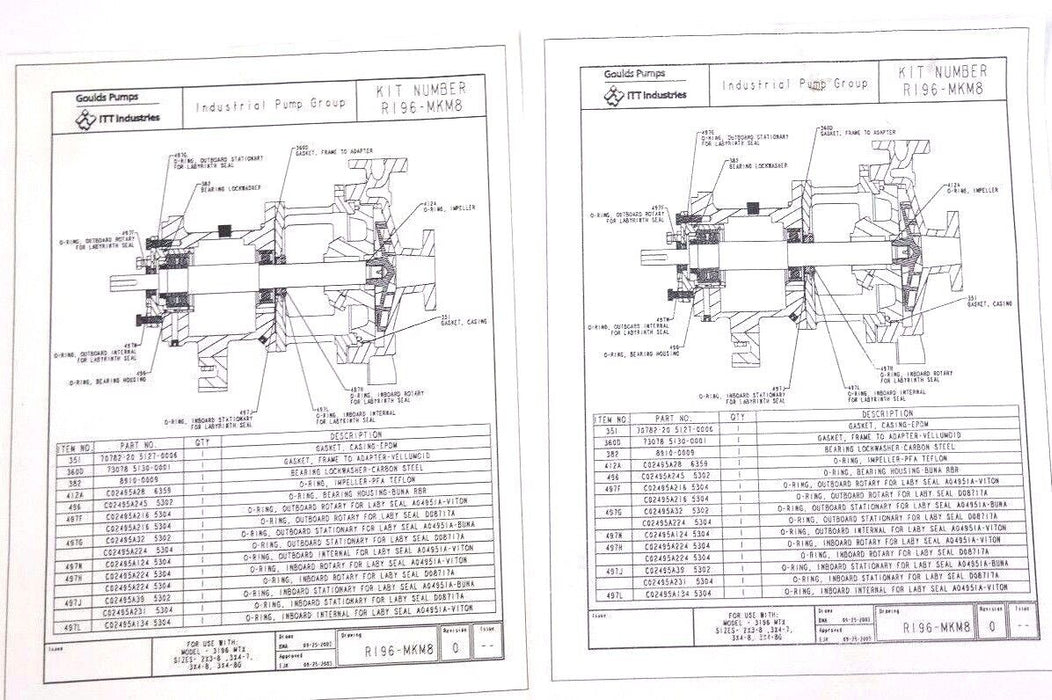 Goulds Pumps
ITT Industries
Industrial Pump Group
KIT NUMBER
R196-MKM8
497G
O-RING, OUTBOARD STATIONARY
FOR LABYRINTH SEAL
360D
GASKET, FRAME TO ADAPTER
382
BEARING LOCKWASHER
412A
O-RING, IMPELLER
497F
O-RING, OUTBOARD ROTARY
FOR LABYRINTH SEAL
351
GASKET, CASING
497N
O-RING, OUTBOARD INTERNAL
FOR LABYRINTH SEAL
496
O-RING, BEARING HOUSING
497H
O-RING, INBOARD ROTARY
FOR LABYRINTH SEAL
497J
O-RING, INBOARD STATIONARY
FOR LABYRINTH SEAL
497L
O-RING, INBOARD INTERNAL
FOR LABYRINTH SEAL
ITEM NO. PART NO. QTY DESCRIPTION
351 70782-20 5127-0006 1 GASKET, CASING-EPDM
360D 73078 5130-0001 1 GASKET, FRAME TO ADAPTER-VELLUMOID
382 8910-0009 1 BEARING LOCKWASHER-CARBON STEEL
412A C02495A28 6359 1 O-RING, IMPELLER-PFA TEFLON
496 C02495A245 5302 1 O-RING, BEARING HOUSING-BUNA RBR
497F C02495A216 5304 1 O-RING, OUTBOARD ROTARY FOR LABY SEAL A04951A-VITON
C02495A216 5304 1 O-RING, OUTBOARD ROTARY FOR LABY SEAL D08717A
497G C02495A32 5302 1 O-RING, OUTBOARD STATIONARY FOR LABY SEAL A04951A-BUNA
C02495A224 5304 1 O-RING, OUTBOARD STATIONARY FOR LABY SEAL D08717A
497N C02495A124 5304 1 O-RING, OUTBOARD INTERNAL FOR LABY SEAL A04951A-VITON
497H C02495A224 5304 1 O-RING, INBOARD ROTARY FOR LABY SEAL A04951A-VITON
C02495A224 5304 1 O-RING, INBOARD ROTARY FOR LABY SEAL D08717A
497J C02495A39 5302 1 O-RING, INBOARD STATIONARY FOR LABY SEAL A04951A-BUNA
C02495A231 5304 1 O-RING, INBOARD STATIONARY FOR LABY SEAL D08717A
497L C02495A134 5304 1 O-RING, INBOARD INTERNAL FOR LABY SEAL A04951A-VITON
Issue
FOR USE WITH:
MODEL - 3196 MTX
SIZES- 2X3-8 ,3X4-7,
3X4-8, 3X4-8G
Drawn
09-25-2003
Approved
EJK 09-25-2003
Drawing
R196-MKM8
Revision
0
Issue
--
Goulds Pumps
ITT Industries
Industrial Pump Group
KIT NUMBER
R196-MKM8
497G
O-RING, OUTBOARD STATIONARY
FOR LABYRINTH SEAL
360D
GASKET, FRAME TO ADAPTER
382
BEARING LOCKWASHER
412A
O-RING, IMPELLER
497F
O-RING, OUTBOARD ROTARY
FOR LABYRINTH SEAL
351
GASKET, CASING
497N
O-RING, OUTBOARD INTERNAL
FOR LABYRINTH SEAL
496
O-RING, BEARING HOUSING
497H
O-RING, INBOARD ROTARY
FOR LABYRINTH SEAL
497J
O-RING, INBOARD STATIONARY
FOR LABYRINTH SEAL
497L
O-RING, INBOARD INTERNAL
FOR LABYRINTH SEAL
ITEM NO. PART NO. QTY DESCRIPTION
351 70782-20 5127-0006 1 GASKET, CASING-EPDM
360D 73078 5130-0001 1 GASKET, FRAME TO ADAPTER-VELLUMOID
382 8910-0009 1 BEARING LOCKWASHER-CARBON STEEL
412A C02495A28 6359 1 O-RING, IMPELLER-PFA TEFLON
496 C02495A245 5302 1 O-RING, BEARING HOUSING-BUNA RBR
497F C02495A216 5304 1 O-RING, OUTBOARD ROTARY FOR LABY SEAL A04951A-VITON
C02495A216 5304 1 O-RING, OUTBOARD ROTARY FOR LABY SEAL D08717A
497G C02495A32 5302 1 O-RING, OUTBOARD STATIONARY FOR LABY SEAL A04951A-BUNA
C02495A224 5304 1 O-RING, OUTBOARD STATIONARY FOR LABY SEAL D08717A
497N C02495A124 5304 1 O-RING, OUTBOARD INTERNAL FOR LABY SEAL A04951A-VITON
497H C02495A224 5304 1 O-RING, INBOARD ROTARY FOR LABY SEAL A04951A-VITON
C02495A224 5304 1 O-RING, INBOARD ROTARY FOR LABY SEAL D08717A
497J C02495A39 5302 1 O-RING, INBOARD STATIONARY FOR LABY SEAL A04951A-BUNA
C02495A231 5304 1 O-RING, INBOARD STATIONARY FOR LABY SEAL D08717A
497L C02495A134 5304 1 O-RING, INBOARD INTERNAL FOR LABY SEAL A04951A-VITON
Issue
FOR USE WITH:
MODEL - 3196 MTX
SIZES- 2X3-8 ,3X4-7,
3X4-8, 3X4-8G
Drawn
09-25-2003
Approved
EJK 09-25-2003
Drawing
R196-MKM8
Revision
0
Issue
--